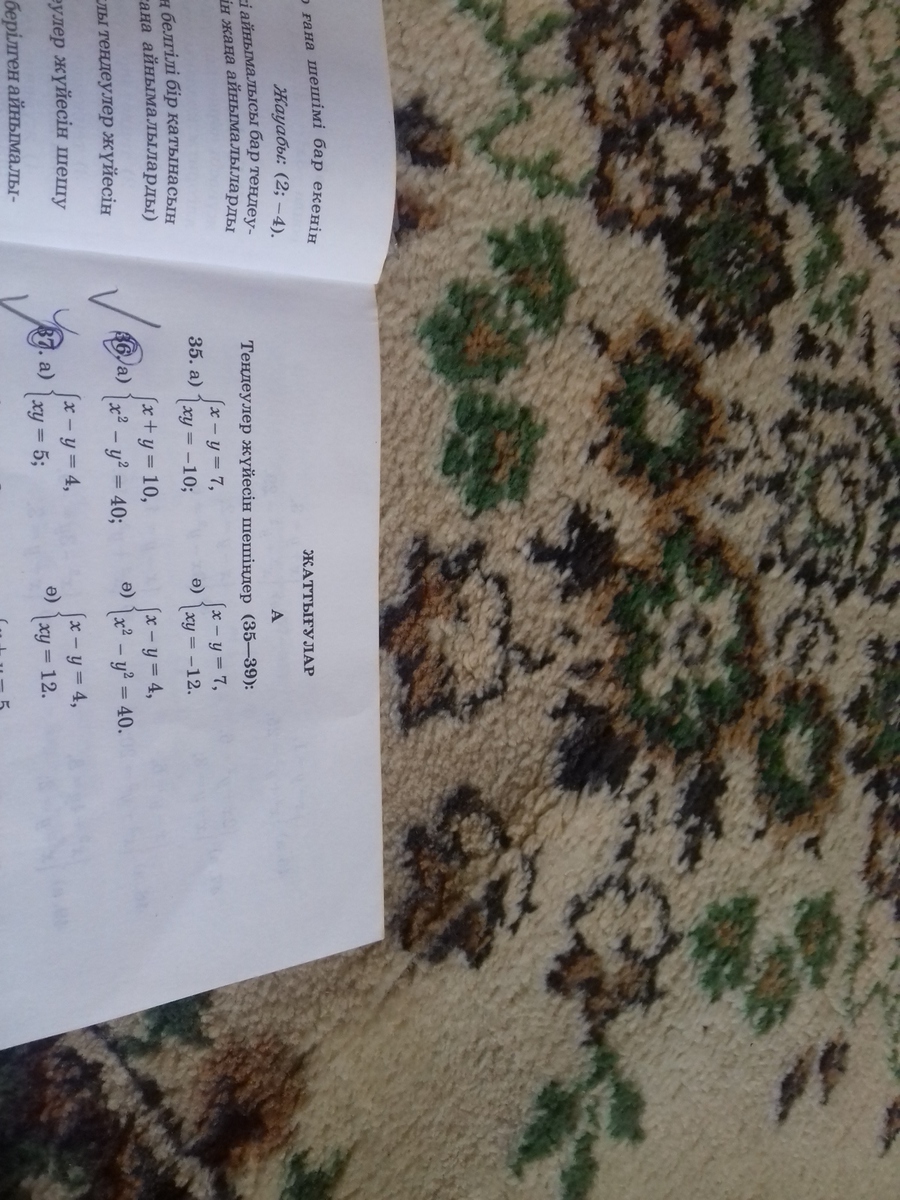 ғана шешімі бар екенін
Жауабы: (2; −4).
айнымалысы бар теңдеу-
жаңа айнымалыларды
белгілі бір қатынасын
айнымалыларды)
теңдеулер жүйесін
жүйесін шешу
берілген айнымалы-
ЖАТТЫҒУЛАР
А
Теңдеулер жүйесін шешіңдер (35—39):
35. а) { x − y = 7, ә) { x − y = 7,
xy = −10; xy = −12.
36. а) { x + y = 10, ә) { x − y = 4,
x² − y² = 40; x² − y² = 40.
37. а) { x − y = 4, ә) { x − y = 4,
xy = 5; xy = 12.